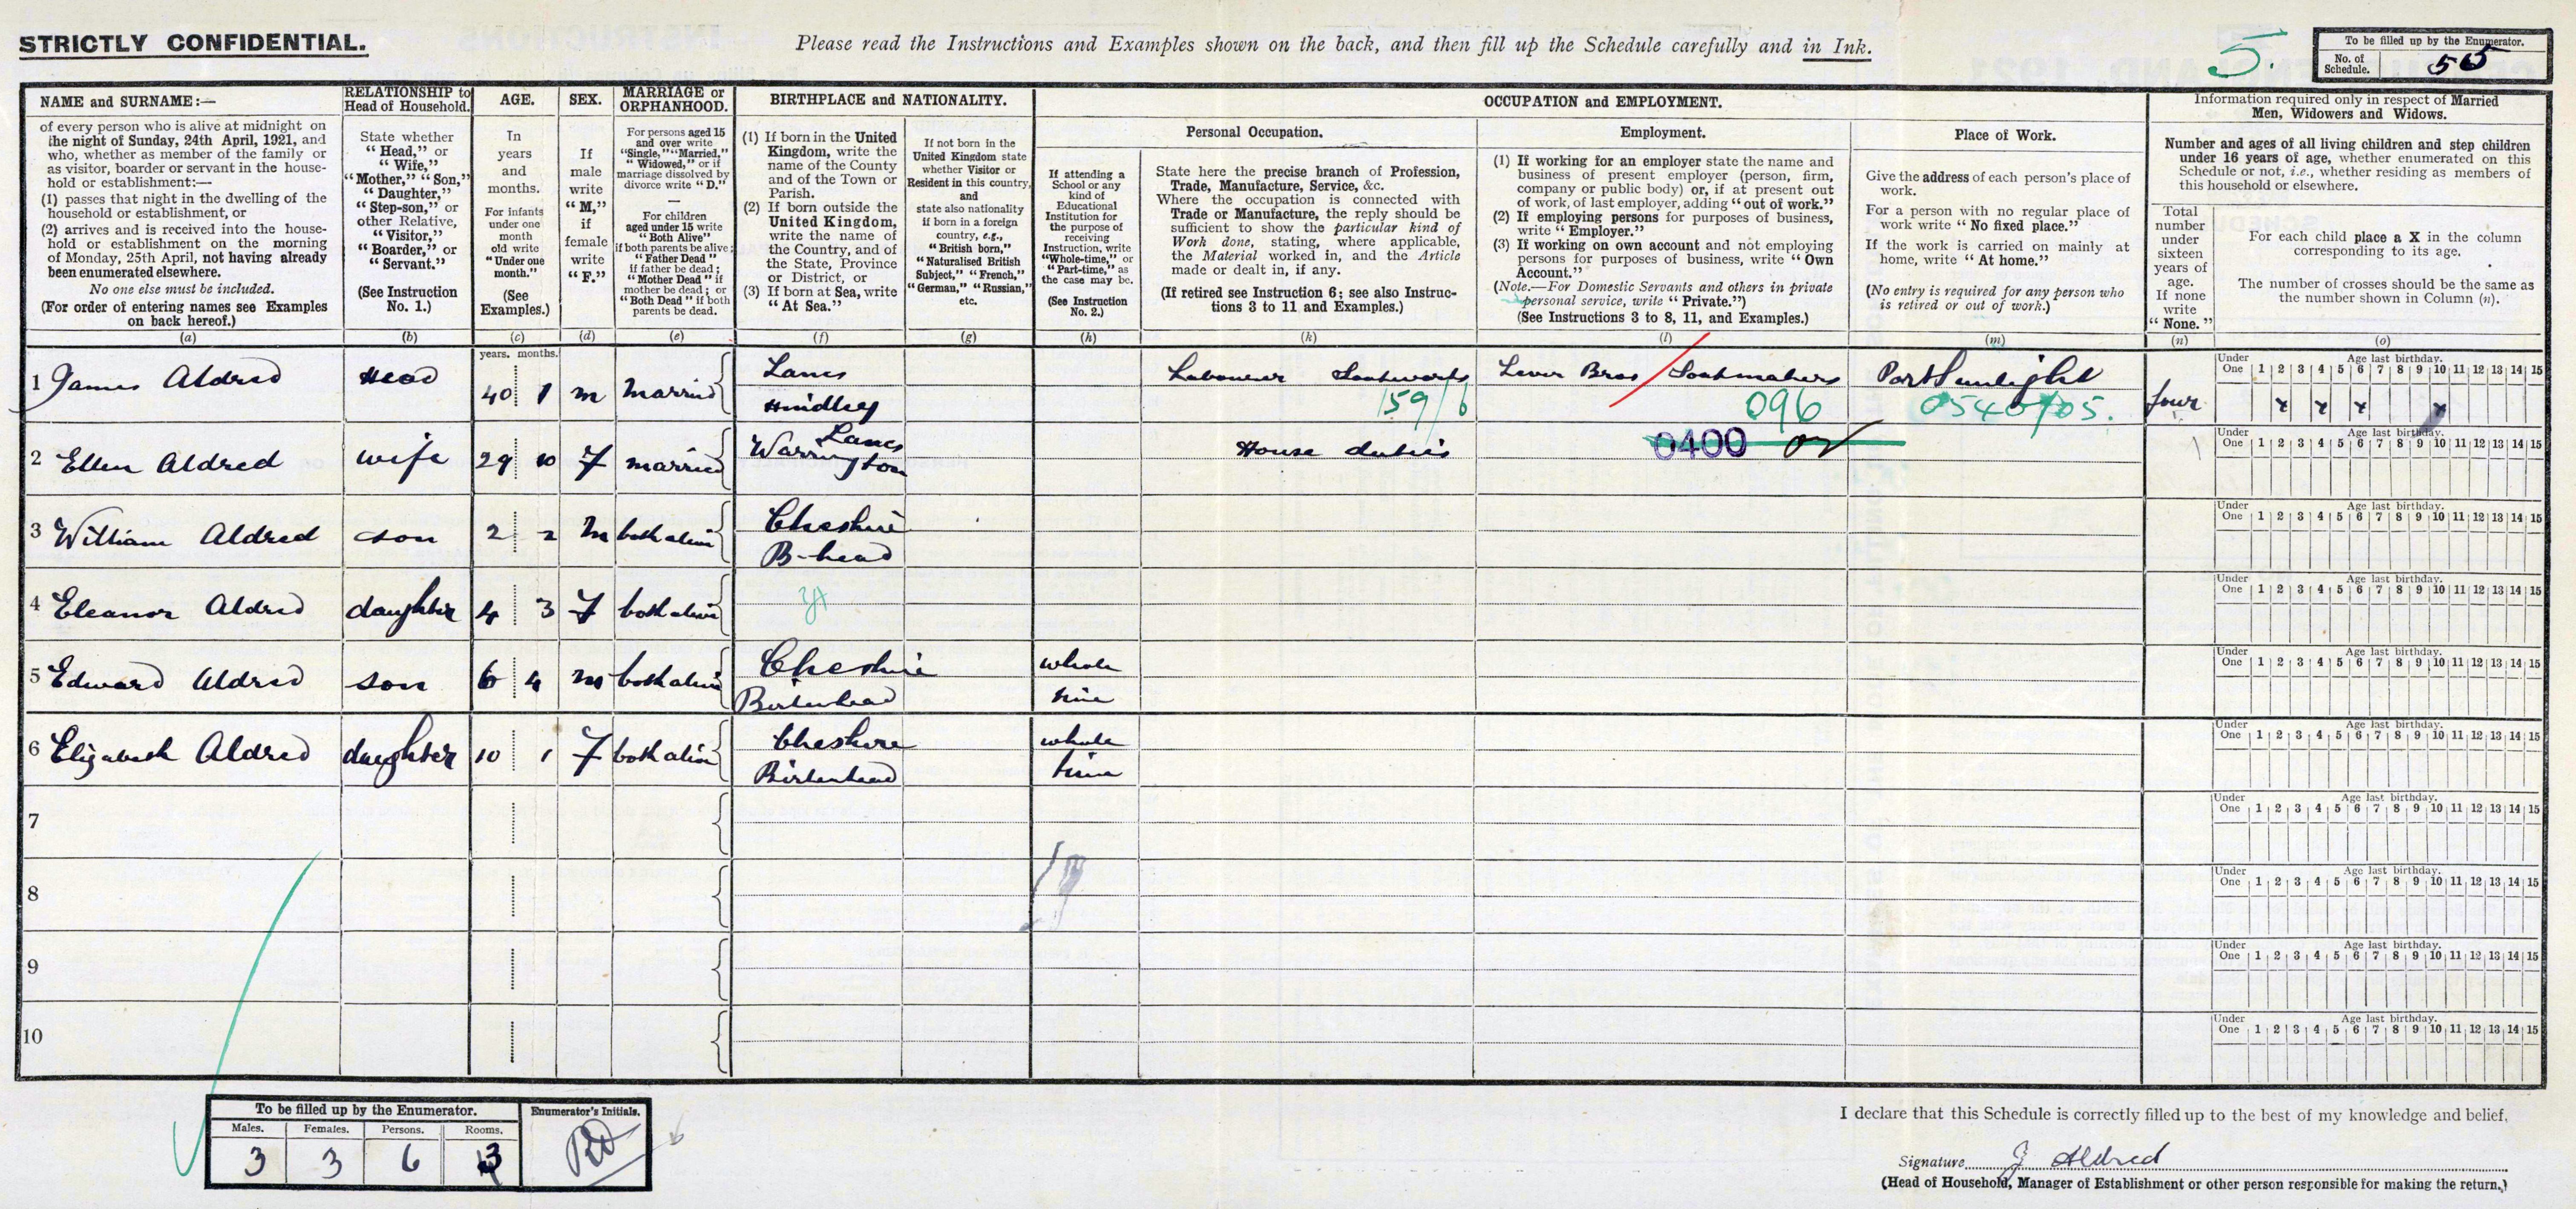 STRICTLY CONFIDENTIAL.
Please read the Instructions and Examples shown on the back, and then fill up the Schedule carefully and in Ink.
5.
To be filled up by the Enumerator.
No. of Schedule. 55
NAME and SURNAME:—
of every person who is alive at midnight on
the night of Sunday, 24th April, 1921, and
who, whether as member of the family or
as visitor, boarder or servant in the house-
hold or establishment:—
(1) passes that night in the dwelling of the
household or establishment, or
(2) arrives and is received into the house-
hold or establishment on the morning
of Monday, 25th April, not having already
been enumerated elsewhere.
No one else must be included.
(For order of entering names see Examples
on back hereof.)
(a)
RELATIONSHIP to
Head of Household.
State whether
"Head," or
"Wife,"
"Mother," "Son,"
"Daughter,"
"Step-son," or
other Relative,
"Visitor,"
"Boarder," or
"Servant."
(See Instruction
No. 1.)
(b)
AGE.
In
years
and
months.
For infants
under one
month
old write
"Under one
month."
(See
Examples.)
(c)
SEX.
If
male
write
"M,"
if
female
write
"F."
(d)
MARRIAGE or
ORPHANHOOD.
For persons aged 15
and over write
"Single," "Married,"
"Widowed," or if
marriage dissolved by
divorce write "D."
—
For children
aged under 15 write
"Both Alive"
if both parents be alive;
"Father Dead"
if father be dead;
"Mother Dead" if
mother be dead; or
"Both Dead" if both
parents be dead.
(e)
BIRTHPLACE and NATIONALITY.
(1) If born in the United
Kingdom, write the
name of the County
and of the Town or
Parish.
(2) If born outside the
United Kingdom,
write the name of
the Country, and of
the State, Province
or District, or
(3) If born at Sea, write
"At Sea."
(f)
If not born in the
United Kingdom state
whether Visitor or
Resident in this country,
and
state also nationality
if born in a foreign
country, e.g.,
"British born,"
"Naturalised British
Subject," "French,"
"German," "Russian,"
etc.
(g)
OCCUPATION and EMPLOYMENT.
If attending a
School or any
kind of
Educational
Institution for
the purpose of
receiving
Instruction, write
"Whole-time," or
"Part-time," as
the case may be.
(See Instruction
No. 2.)
(h)
Personal Occupation.
State here the precise branch of Profession,
Trade, Manufacture, Service, &c.
Where the occupation is connected with
Trade or Manufacture, the reply should be
sufficient to show the particular kind of
Work done, stating, where applicable,
the Material worked in, and the Article
made or dealt in, if any.
(If retired see Instruction 6; see also Instruc-
tions 3 to 11 and Examples.)
(k)
Employment.
(1) If working for an employer state the name and
business of present employer (person, firm,
company or public body) or, if at present out
of work, of last employer, adding "out of work."
(2) If employing persons for purposes of business,
write "Employer."
(3) If working on own account and not employing
persons for purposes of business, write "Own
Account."
(Note.—For Domestic Servants and others in private
personal service, write "Private.")
(See Instructions 3 to 8, 11, and Examples.)
(l)
Place of Work.
Give the address of each person's place of
work.
For a person with no regular place of
work write "No fixed place."
If the work is carried on mainly at
home, write "At home."
(No entry is required for any person who
is retired or out of work.)
(m)
Information required only in respect of Married
Men, Widowers and Widows.
Number and ages of all living children and step children
under 16 years of age, whether enumerated on this
Schedule or not, i.e., whether residing as members of
this household or elsewhere.
Total
number
under
sixteen
years of
age.
If none
write
"None."
(n)
For each child place a X in the column
corresponding to its age.
The number of crosses should be the same as
the number shown in Column (n).
(o)
years. months.
Under One Age last birthday. 1 2 3 4 5 6 7 8 9 10 11 12 13 14 15
1 James Aldred Head 40 1 m Married Lancs Hindley Labourer Soapworks Lever Bros Soapmakers Port Sunlight four x x x x
159/6 096 0540/05.
Under One Age last birthday. 1 2 3 4 5 6 7 8 9 10 11 12 13 14 15
2 Ellen Aldred wife 29 10 F married Lancs Warrington House duties 0400
Under One Age last birthday. 1 2 3 4 5 6 7 8 9 10 11 12 13 14 15
3 William Aldred son 2 2 M both alive Cheshire B-head
Under One Age last birthday. 1 2 3 4 5 6 7 8 9 10 11 12 13 14 15
4 Eleanor Aldred daughter 4 3 F both alive
Under One Age last birthday. 1 2 3 4 5 6 7 8 9 10 11 12 13 14 15
5 Edward Aldred son 6 4 m both alive Cheshire Birkenhead whole time
Under One Age last birthday. 1 2 3 4 5 6 7 8 9 10 11 12 13 14 15
6 Elizabeth Aldred daughter 10 1 F both alive Cheshire Birkenhead whole time
Under One Age last birthday. 1 2 3 4 5 6 7 8 9 10 11 12 13 14 15
7
Under One Age last birthday. 1 2 3 4 5 6 7 8 9 10 11 12 13 14 15
8
Under One Age last birthday. 1 2 3 4 5 6 7 8 9 10 11 12 13 14 15
9
Under One Age last birthday. 1 2 3 4 5 6 7 8 9 10 11 12 13 14 15
10
To be filled up by the Enumerator.
Males. Females. Persons. Rooms.
3 3 6 3
Enumerator's Initials.
I declare that this Schedule is correctly filled up to the best of my knowledge and belief.
Signature J Aldred
(Head of Household, Manager of Establishment or other person responsible for making the return.)